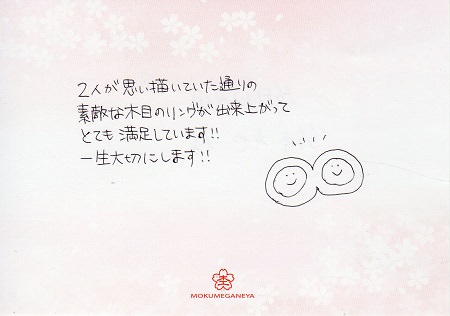 2人が思い描いていた通りの
素敵な木目のリングが出来上がって
とても満足しています!!
一生大切にします!!
MOKUMEGANEYA